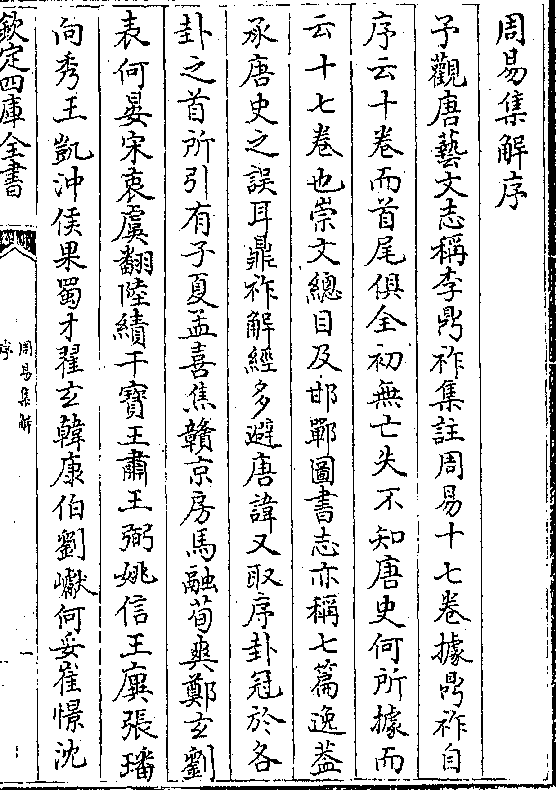 周易集解序
予觀唐藝文志稱李鼎祚集註周易十七卷據鼎祚自
序云十卷而首尾俱全初無亡失不知唐史何所據而
云十七卷也崇文總目及邯鄲圖書志亦稱七篇逸葢
承唐史之誤耳鼎祚解經多避唐諱又取序卦冠於各
卦之首所引有子夏孟喜焦贛京房馬融荀爽鄭玄劉
表何晏宋衷虞翻陸績干寶王肅王弼姚信王廙張璠
向秀王凱沖侯果蜀才翟玄韓康伯劉巘何妥崔憬沈
欽定四庫全書
周易集解
序
一